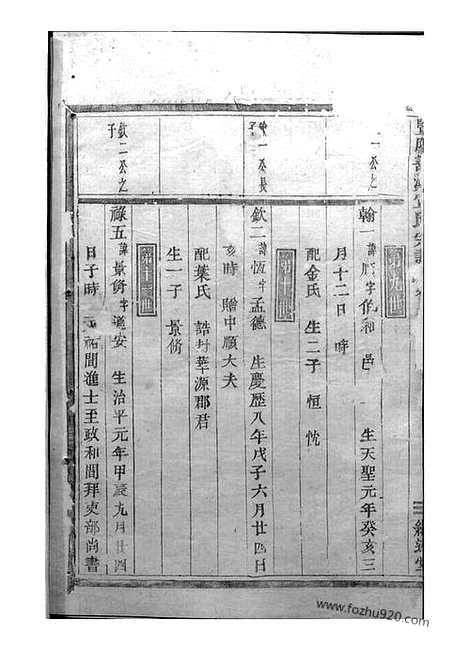 第九世
一公之
翰一諱 字 和邑 生天聖元年癸亥三
月十二日 時
配金氏 生二子 恒 忱
第十世
一公長子
欽二諱恆字孟德 生慶歷八年戊子六月廿四日
亥時 贈中順大夫
配葉氏 誥封華源郡君
生一子 景脩
第十一世
欽二公之子
祿五諱景脩字道安 生治平元年甲辰九月廿四
日子時 元祐間進士至政和間拜吏部尚書
www.fozhu920.com